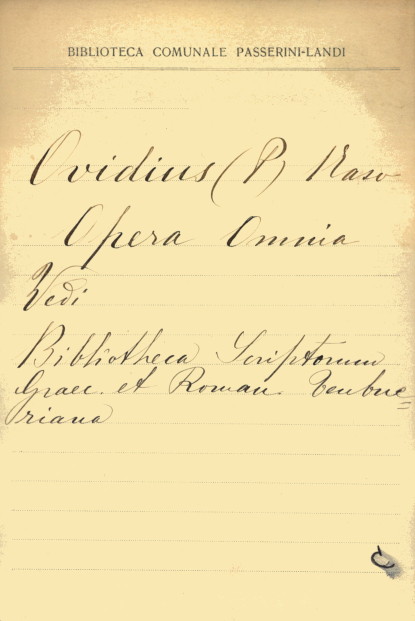 BIBLIOTECA COMUNALE PASSERINI-LANDI
Ovidius (P) Naso
Opera Omnia
Vedi
Bibliotheca Scriptorum
Graec. et Roman. Teubne=
riana
C